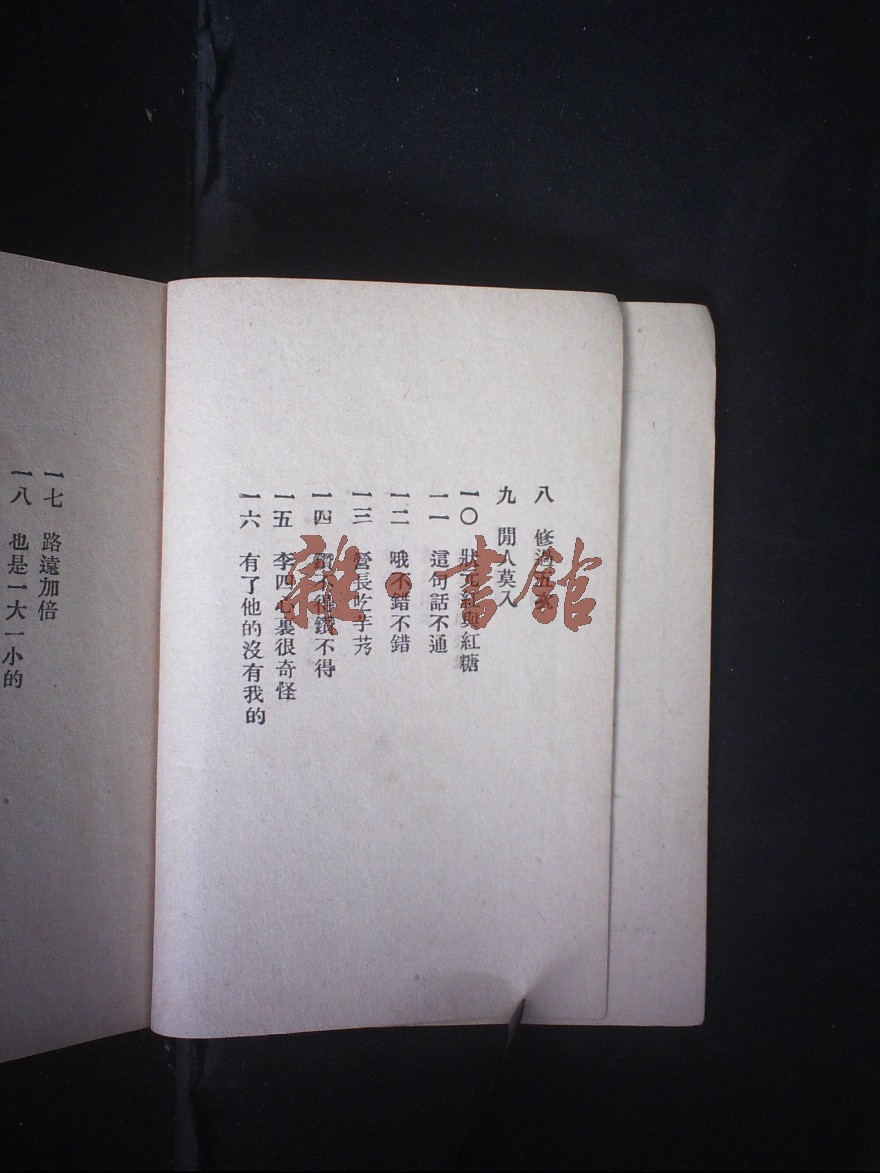 八 修過五次
九 閒人莫入
一〇 狀元紅與紅糖
一一 這句話不通
一二 哦不錯不錯
一三 營長吃芋艿
一四 鑽不得鑽不得
一五 李四心裏很奇怪
一六 有了他的沒有我的
一七 路遠加倍
一八 也是一大一小的
雜·書館